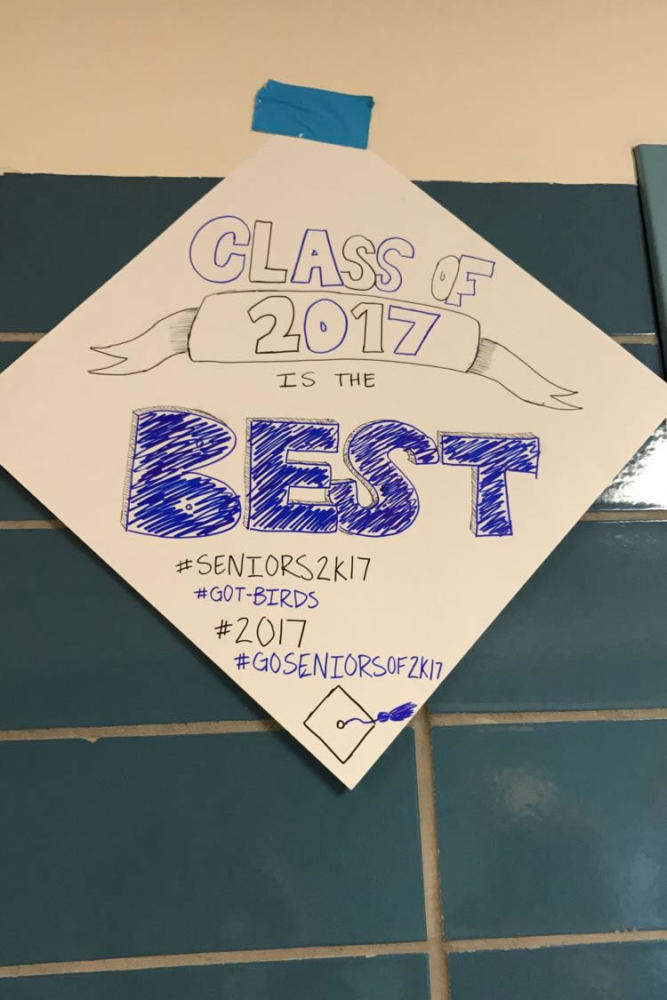 CLASS OF
2017
IS THE
BEST
#SENIORS2K17
#GOT-BIRDS
#2017
#GOSENIORSOF2K17